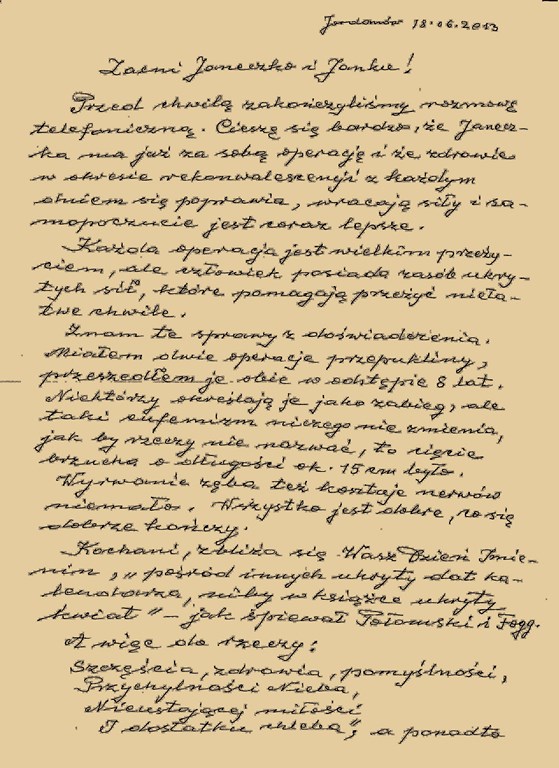 Jordanów 18.06.2013
Zacni Janeczko i Janku!
Przed chwilą zakończyliśmy rozmowę
telefoniczną. Cieszę się bardzo, że Janecz-
ka ma już za sobą operację i że zdrowie
w okresie rekonwalescencji z każdym
dniem się poprawia, wracają siły i sa-
mopoczucie jest coraz lepsze.
Każda operacja jest wielkim przeży-
ciem, ale człowiek posiada zasób ukry-
tych sił, które pomagają przeżyć nieła-
twe chwile.
Znam te sprawy z doświadczenia.
Miałem dwie operacje przepukliny,
przeszedłem je obie w odstępie 8 lat.
Niektórzy określają je jako zabieg, ale
taki eufemizm niczego nie zmienia,
jak by rzeczy nie nazwać, to cięcie
brzucha o długości ok. 15 cm było.
Wyrwanie zęba też kosztuje nerwów
niemało. Wszystko jest dobre, co się
dobrze kończy.
Kochani, zbliża się Wasz Dzień Imie-
nin, „pośród innych ukryty dat ka-
lendarza, niby w książce ukryty
kwiat" – jak śpiewał Połomski i Fogg.
A więc do rzeczy:
Szczęścia, zdrowia, pomyślności,
Przychylności Nieba,
Nieustającej miłości
I dostatku chleba", a ponadto